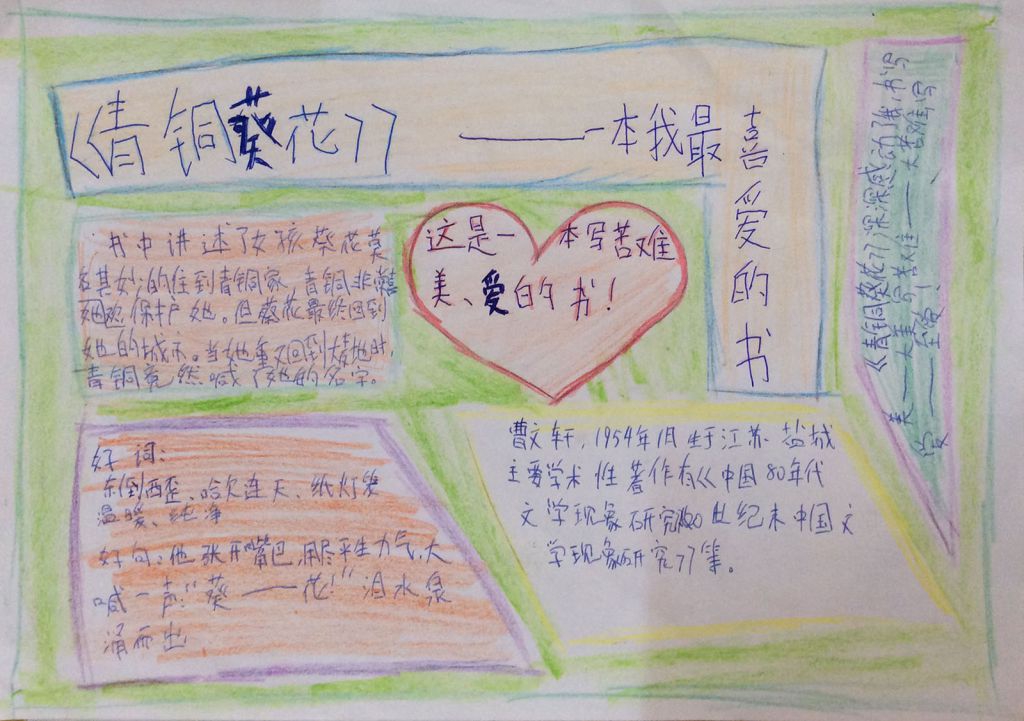 《青铜葵花》 ———一本我最
喜爱的书
书中讲述了女孩葵花莫
名其妙的住到青铜家，青铜非常
照顾、保护她。但葵花最终回到
她的城市。当她重又回到大麦地时，
青铜竟然喊了她的名字。
这是一本写苦难
美、爱的书！
《青铜葵花》深深感动了我，书写
美——大美；写苦难——大苦难；写
爱——至爱！
好词：
东倒西歪、哈欠连天、纸灯笼
温暖、纯净
好句：他张开嘴巴，用尽平生力气，大
喊一声：“葵——花！”泪水泉
涌而出。
曹文轩，1954年1月生于江苏盐城
主要学术性著作有《中国80年代
文学现象研究》《20世纪末中国文
学现象研究》等。